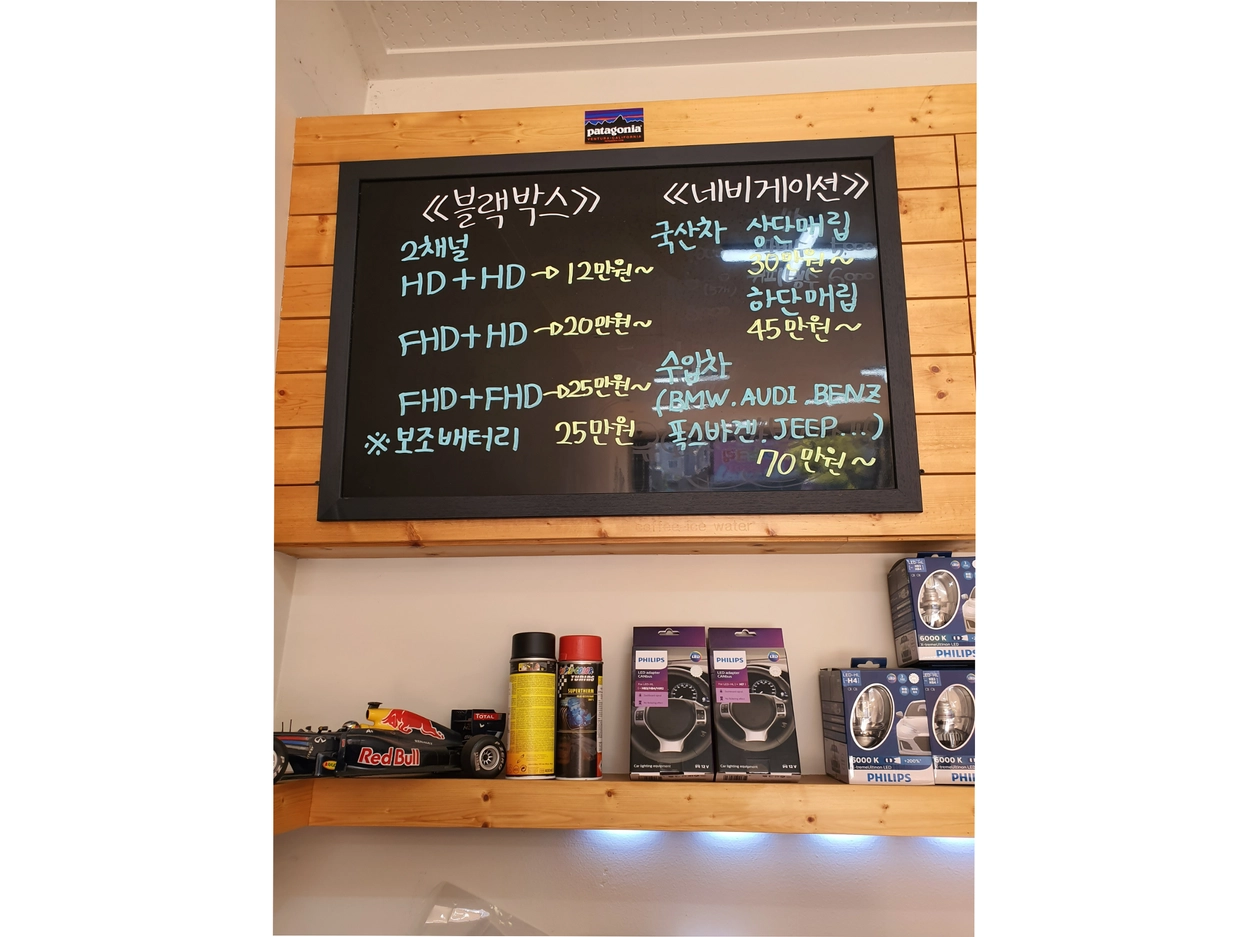 patagonia
《블랙박스》
2채널
HD + HD → 12만원~
FHD + HD → 20만원~
FHD + FHD → 25만원~
※ 보조배터리 25만원
《네비게이션》
국산차 상단매립
30만원~
하단매립
45만원~
수입차
(BMW. AUDI. BENZ
폭스바겐. JEEP...)
70만원~
coffee me water
Red Bull
TOTAL
TUNING
SUPERTHERM
PHILIPS
LED adapter
CANbus
Car lighting equipment
12 V
PHILIPS
LED adapter
CANbus
Car lighting equipment
12 V
6000 K
PHILIPS
LED-HL
H4
6000 K
+200%
PHILIPS
6000 K